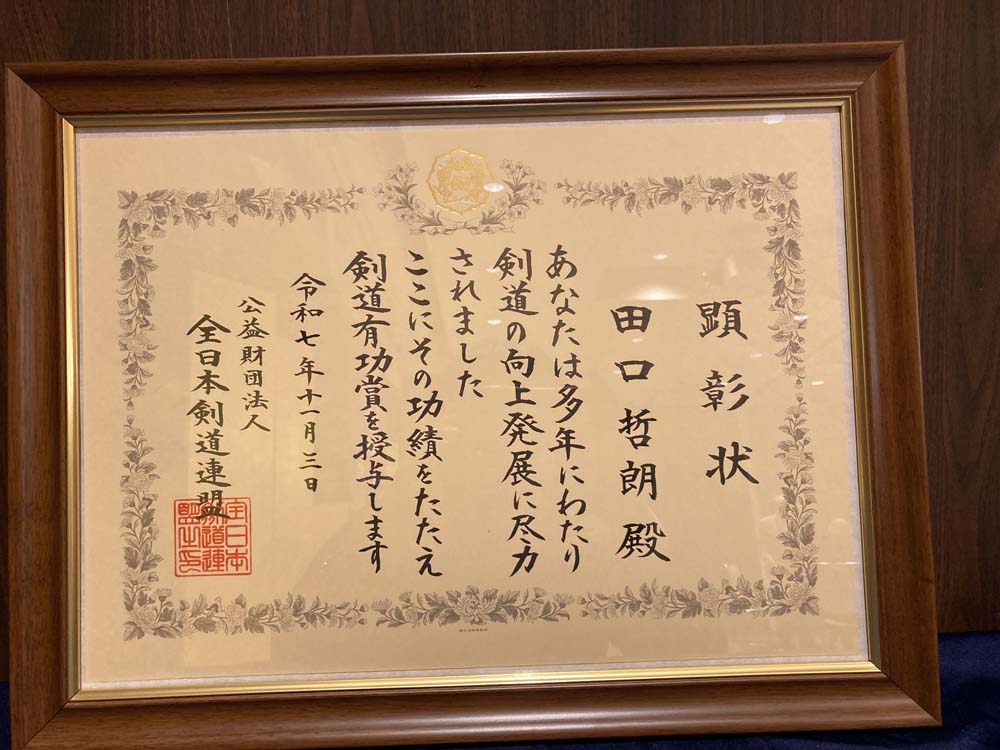 顕彰状
田口哲朗殿
あなたは多年にわたり
剣道の向上発展に尽力
されました
ここにその功績をたたえ
剣道有功賞を授与します
令和七年十一月三日
公益財団法人
全日本剣道連盟
全日本
剣道連
盟之印